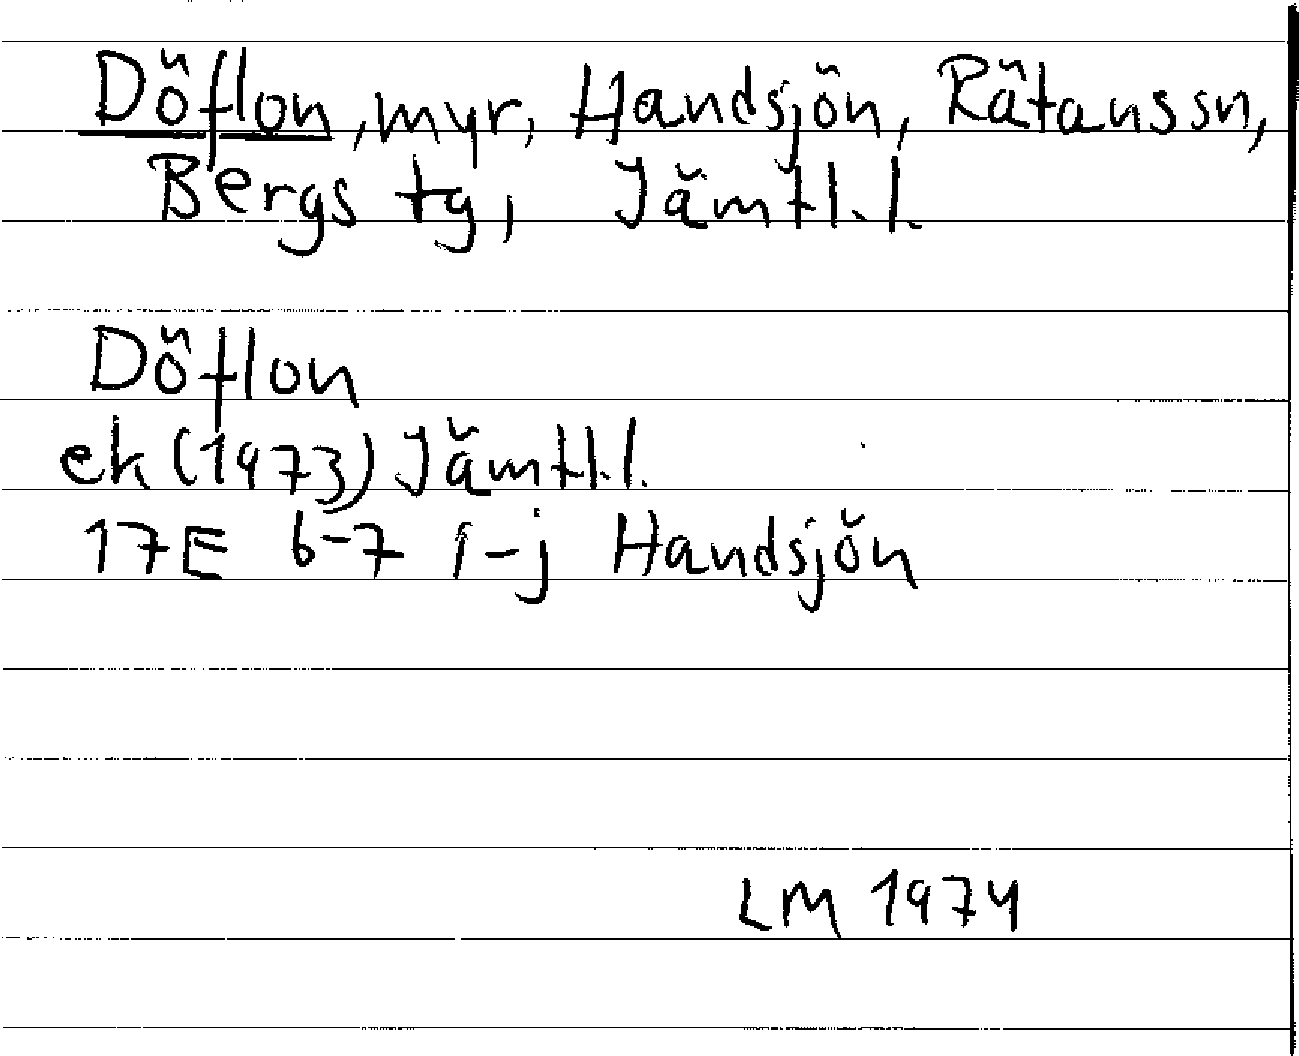 Döflon, myr, Handsjön, Rätanssn,
Bergs tg, Jämtl. l.
Döflon
ek (1973) Jämtl. l.
17E 6-7 i-j Handsjön
LM 1974